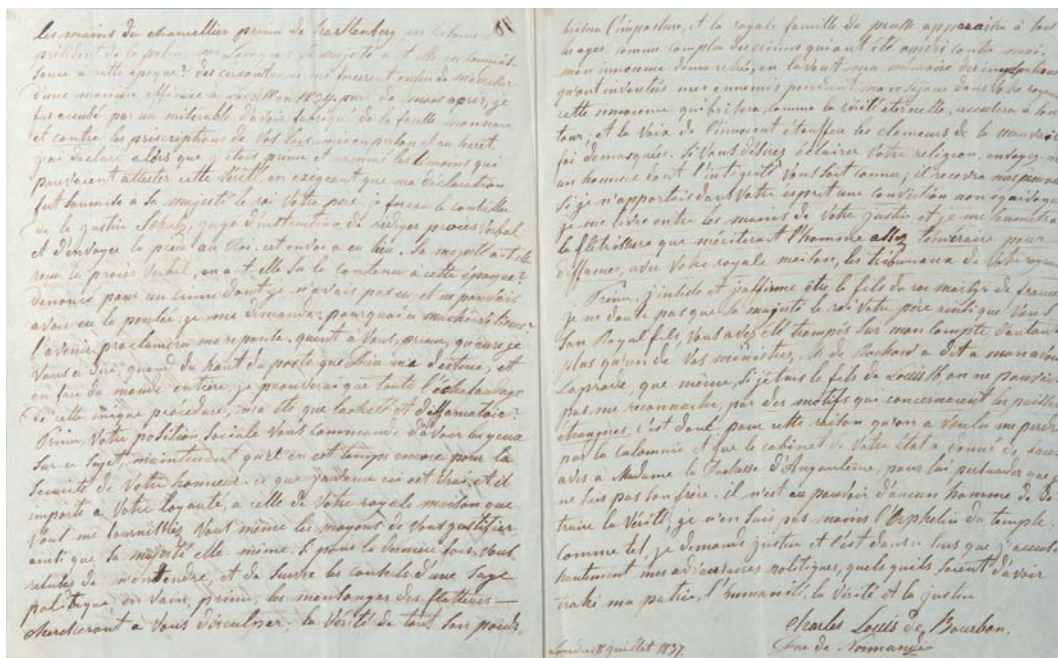 les mains du chancellier prince de hardenberg
président de la police, sa majesté a-t-elle en connais-
sance a cette époque? des circonstances me forcèrent enfin a
d'une manière in 1824. peu de mois apres, je
fus accusé par un misérable d'avoir fabriqué de la fausse monnaie,
et contre les prescriptions de vos lois, mis en prison et au secret.
j'ai déclaré alors que j'étais prince et nommé les témoins qui
pouvaient attester cette vérité, en exigeant que ma déclaration
fut soumise à Sa majesté le roi Votre père, je forçai le conseiller
de la justice Schulz, juge d'instruction, de rédiger procès Verbal
et d'envoyer la pièce au Roi. cet envoi a eu lieu. Sa majesté a-t-elle
reçu le procès Verbal, en a-t-elle su le contenu à cette époque?
dénoncé pour un crime dont je n'avais pas eu et ne pouvais
avoir eu la pensée: je me demande: pourquoi
l'avenir proclamera ma reponse. quant à Vous, prince, qu'aurez
Vous a dire, quand du haut du poste que Dieu m'a destiné, et
en face du monde entière, je prouverai que toute l'échafaudage
de cette inique procédure, n'a été que lacheté et diffamatoire?
Prince, Votre position Sociale Vous commande d'avoir les yeux
Sur ce Sujet, maintenant qu'il en est temps encore pour la
Sécurité de Votre honneur. ce que j'avance ici est vrai, et il
importe à Votre loyauté, a celle de Votre royale maison que
Vous me fournissiez Vous même les moyens de Vous justifier
ainsi que Sa majesté elle même. Si pour la dernière fois, Vous
refusez de m'entendre, et de Suivre les conseils d'une Sage
politique, en vain, prince, les mensonges des flatteurs—
chercheront a Vous disculper; la Vérité de tout Son poids,
l'imposture, et la royale famille de prusse apparaitra à tous
les ages, comme complice des crimes qui ont été contre moi.
mon innocence en lavant ma mémoire des
qu'ont inventés mes ennemis pendant mon séjour dans Votre royaume
cette innocence qui brillera, comme la Vérité éternelle, à Son
tour, et la Voix de l'innocent étouffera les clameurs de la mauvaise
foi demasquée. Si Vous désirez éclairer Votre religion, envoyez
un homme dont l'intégrité Vous soit connue; il recevra mes preuves
Si je n'apportais dans Votre esprit une conviction non équivoque
je me livre entre les mains de Votre justice et je me
la flétrissure que mériterait l'homme assez téméraire pour
diffamer, avec Votre royale maison, les tribunaux de Votre royaume
Prince, j'insiste et j'affirme être le fils du roi martyr de france
je ne doute pas que Sa majesté le roi Votre père ainsi que Vous
Son Royal fils, Vous avez été trompés Sur mon compte, d'autant
plus qu'un de Vos ministres, M. de Rochow a dit a mon avocat
Laprade, que même, Si j'étais le fils de Louis 16 on ne pouvait
pas me reconnaitre, par des motifs qui concernaient les puissances
étrangères. C'est donc pour cette raison qu'on a voulu me perdre
par la calomnie, et que le cabinet de Votre État a donné de faux
avis à Madame la Duchesse d'Angoulême, pour lui persuader que je
ne Suis pas Son frère. il n'est au pouvoir d'aucun homme de
truire la Vérité, je n'en Suis pas moins l'Orphelin du temple
Comme tel, je demande justice et c'est dans ce Sens que j'accuse
hautement mes adversaires politiques, quels qu'ils Soient d'avoir
trahi ma patrie, l'humanité, la Vérité et la justice
Charles Louis de Bourbon.
Duc de Normandie
Londres 8 juillet 1837.